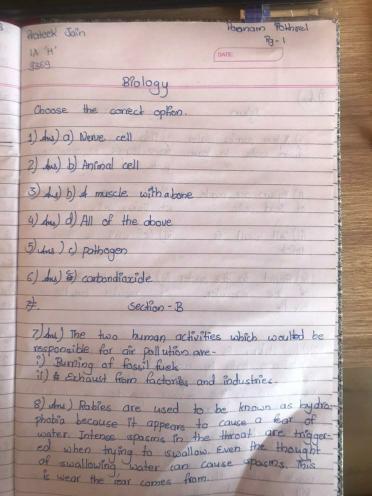 Prateek Jain
Pg - 1
DATE:
Biology
Choose the correct option.
1) Ans) a) Nerve cell
2) Ans) b) Animal cell
3) Ans) b) A muscle with a bone
4) Ans) d) All of the above
5) Ans) c) pathogen
6) Ans) carbondioxide
Section - B
7) Ans) The two human activities which would be
responsible for air pollution are-
i) Burning of fossil fuels
ii) Exhaust from factories and industries.
8) Ans) Rabies are used to be known as hydro-
phobia because it appears to cause a fear of
water. Intense spasms in the throat are trigger-
ed when trying to swallow. Even the thought
of swallowing water can cause spasms. This
is wear the fear comes from.